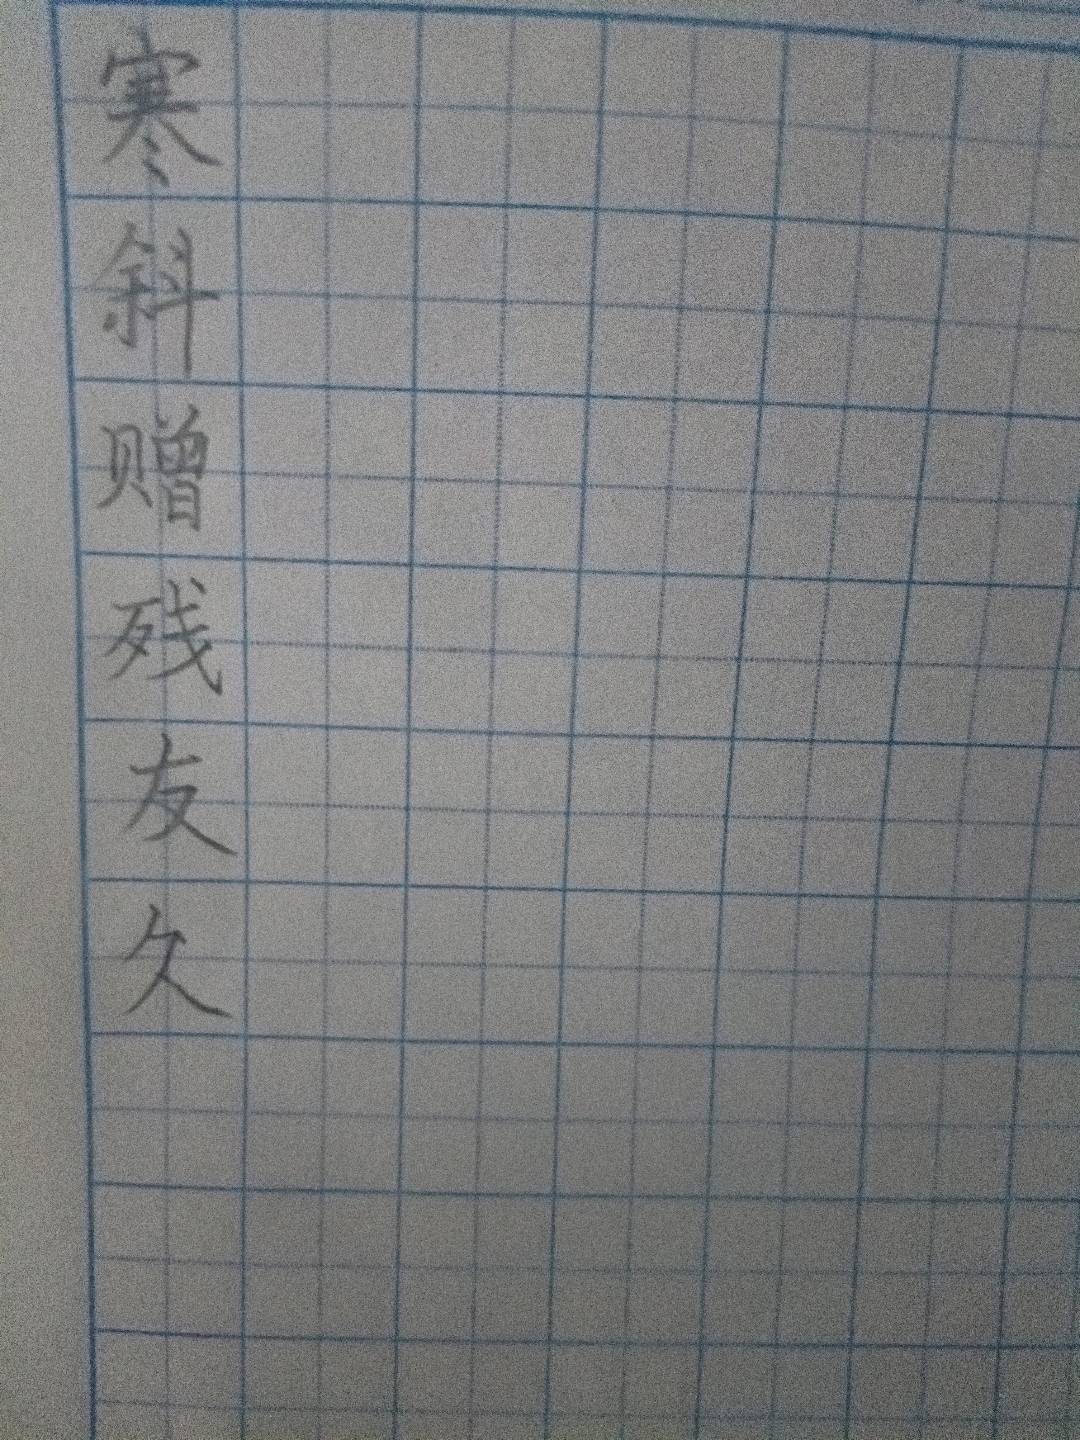 寒
斜
赠
残
友
久